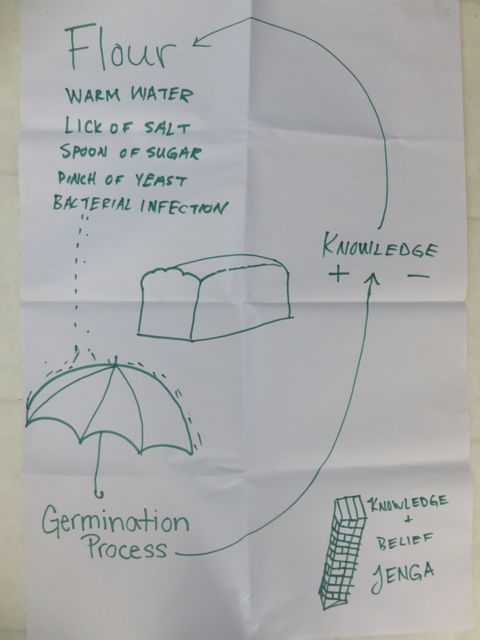 Flour
WARM WATER
LICK OF SALT
SPOON OF SUGAR
PINCH OF YEAST
BACTERIAL INFECTION
KNOWLEDGE
+ −
Germination
Process
KNOWLEDGE
+
BELIEF
JENGA